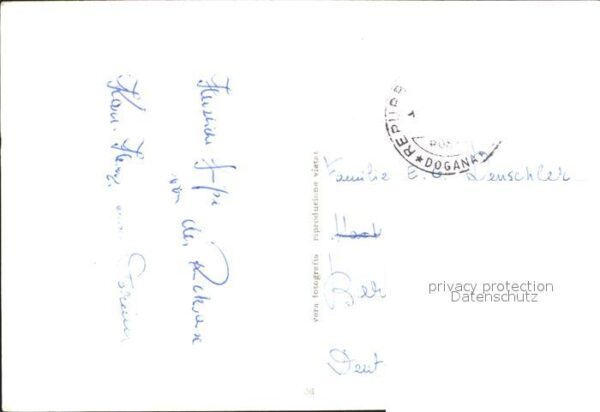 Herzliche Grüße
von der Rückreise
Karl-Heinz und
vera fotografia riproduzione vietat
REPUBB
POS
★DOGANA
Familie E. G. Renschler
Deut
privacy protection
Datenschutz